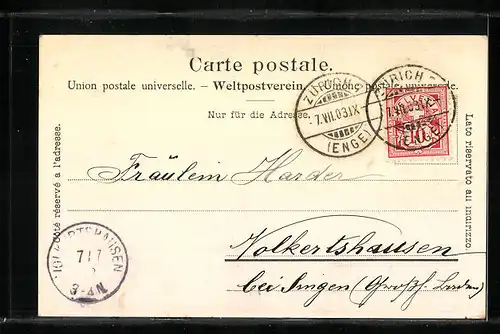 Carte postale.
Union postale universelle. – Weltpostverein. – Unione postale universale.
Nur für die Adresse.
Côté réservé à l'adresse.
Lato riservato all'indirizzo.
ZÜRICH
7.VII.03.IX
(ENGE)
ZÜRICH
7.VII.03.IX
(ENGE)
HELVETIA
10
Fräulein Harder
Volkertshausen
bei Singen (Großh. Baden)
VOLKERTSHAUSEN
7/7
3-4N